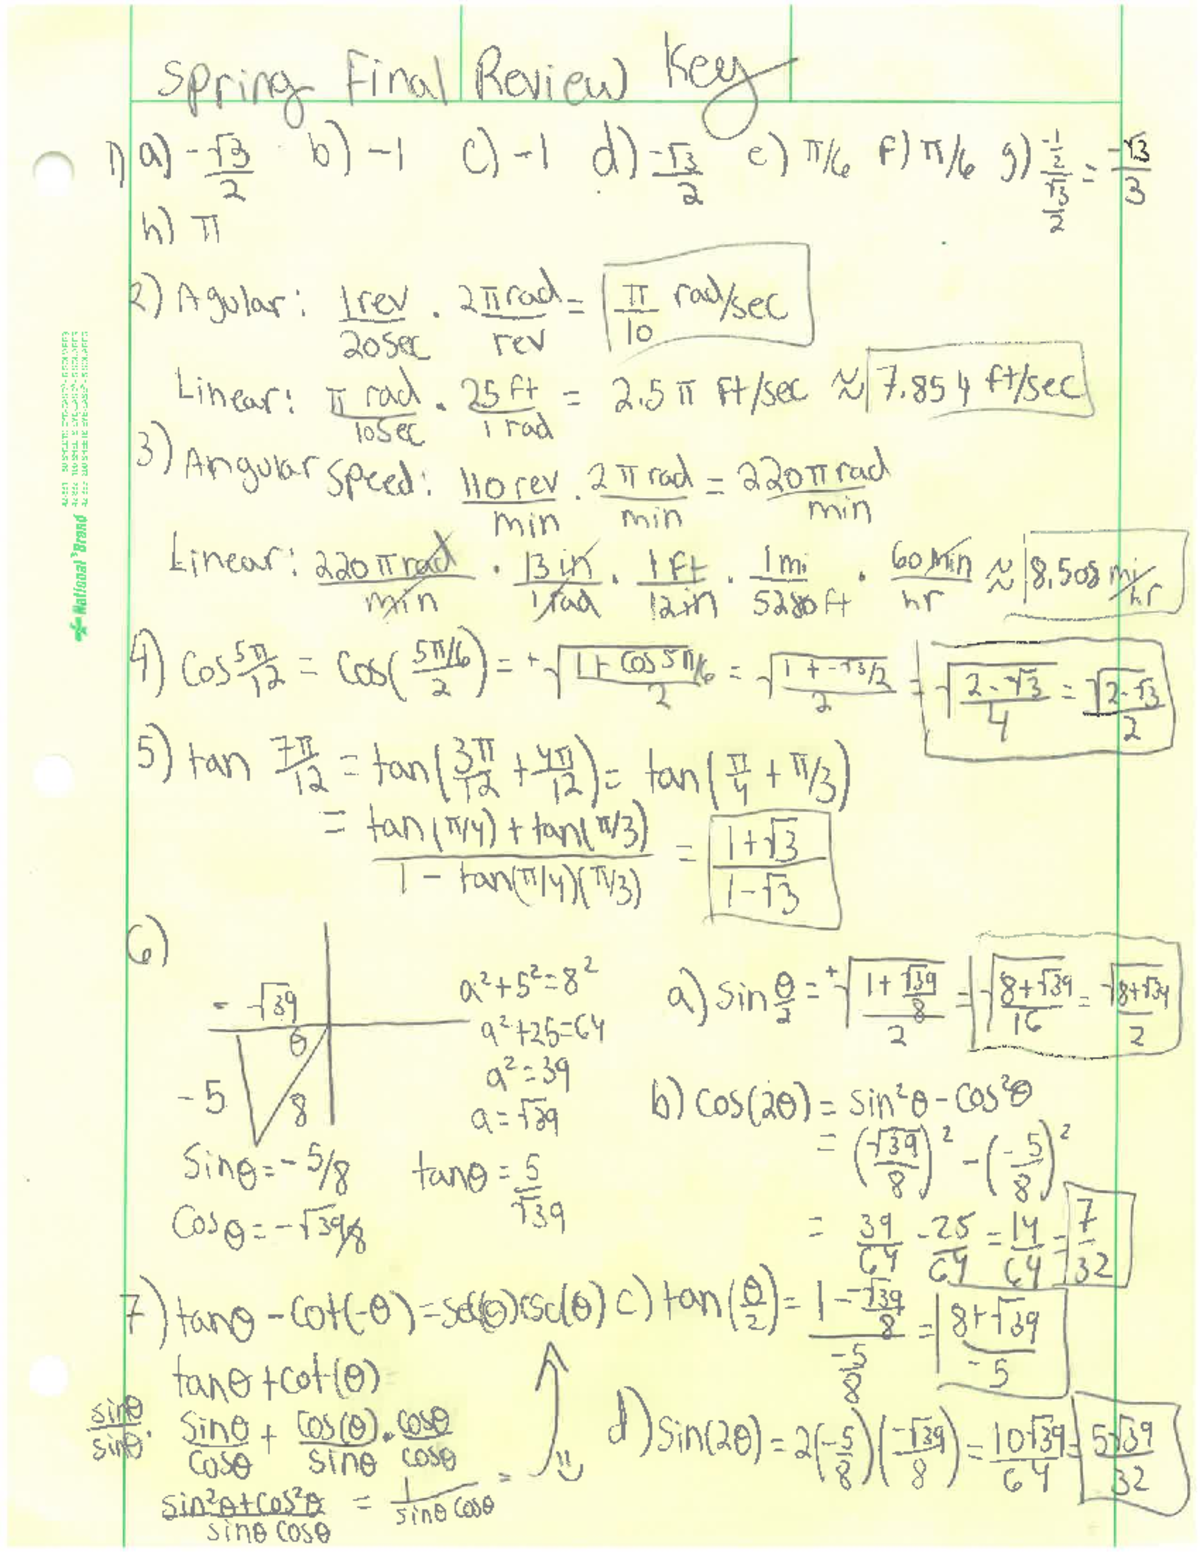 Spring Final Review Key
1) a) -√3/2 b) -1 c) -1 d) -√3/2 e) π/6 f) π/6 g) (-1/2)/(√3/2) = -√3/3
h) π
2) Agular: 1rev/20sec · 2πrad/rev = π/10 rad/sec
Linear: π rad/10sec · 25 ft/1 rad = 2.5π ft/sec ≈ 7.854 ft/sec
3) Angular Speed: 110 rev/min · 2π rad/min = 220π rad/min
Linear: 220π rad/min · 13 in/1 rad · 1 ft/12 in · 1 mi/5280 ft · 60 min/hr ≈ 8.508 mi/hr
4) Cos 5π/12 = Cos((5π/6)/2) = +√((1 + cos 5π/6)/2) = √((1 + -√3/2)/2) = √((2-√3)/4) = √(2-√3)/2
5) tan 7π/12 = tan(3π/12 + 4π/12) = tan(π/4 + π/3)
= (tan(π/4) + tan(π/3))/(1 - tan(π/4)(π/3)) = (1+√3)/(1-√3)
6)
-√39
θ
-5
8
a²+5²=8²
a²+25=64
a²=39
a=√39
sinθ=-5/8 tanθ=5/√39
Cosθ=-√39/8
a) sin θ/2 = +√((1+√39/8)/2) = √((8+√39)/16) = √(8+√39)/2
b) cos(2θ) = sin²θ - cos²θ
= (√39/8)² - (-5/8)²
= 39/64 - 25/64 = 14/64 = 7/32
c) tan(θ/2) = (1--√39/8)/(-5/8) = (8+√39)/-5
d) sin(2θ) = 2(-5/8)(-√39/8) = 10√39/64 = 5√39/32
7) tanθ - cot(-θ) = sec(θ)csc(θ)
tanθ + cot(θ)
sinθ/sinθ · sinθ/cosθ + cos(θ)/sinθ · cosθ/cosθ
(sin²θ+cos²θ)/(sinθ cosθ) = 1/(sinθ cosθ) =
National Brand